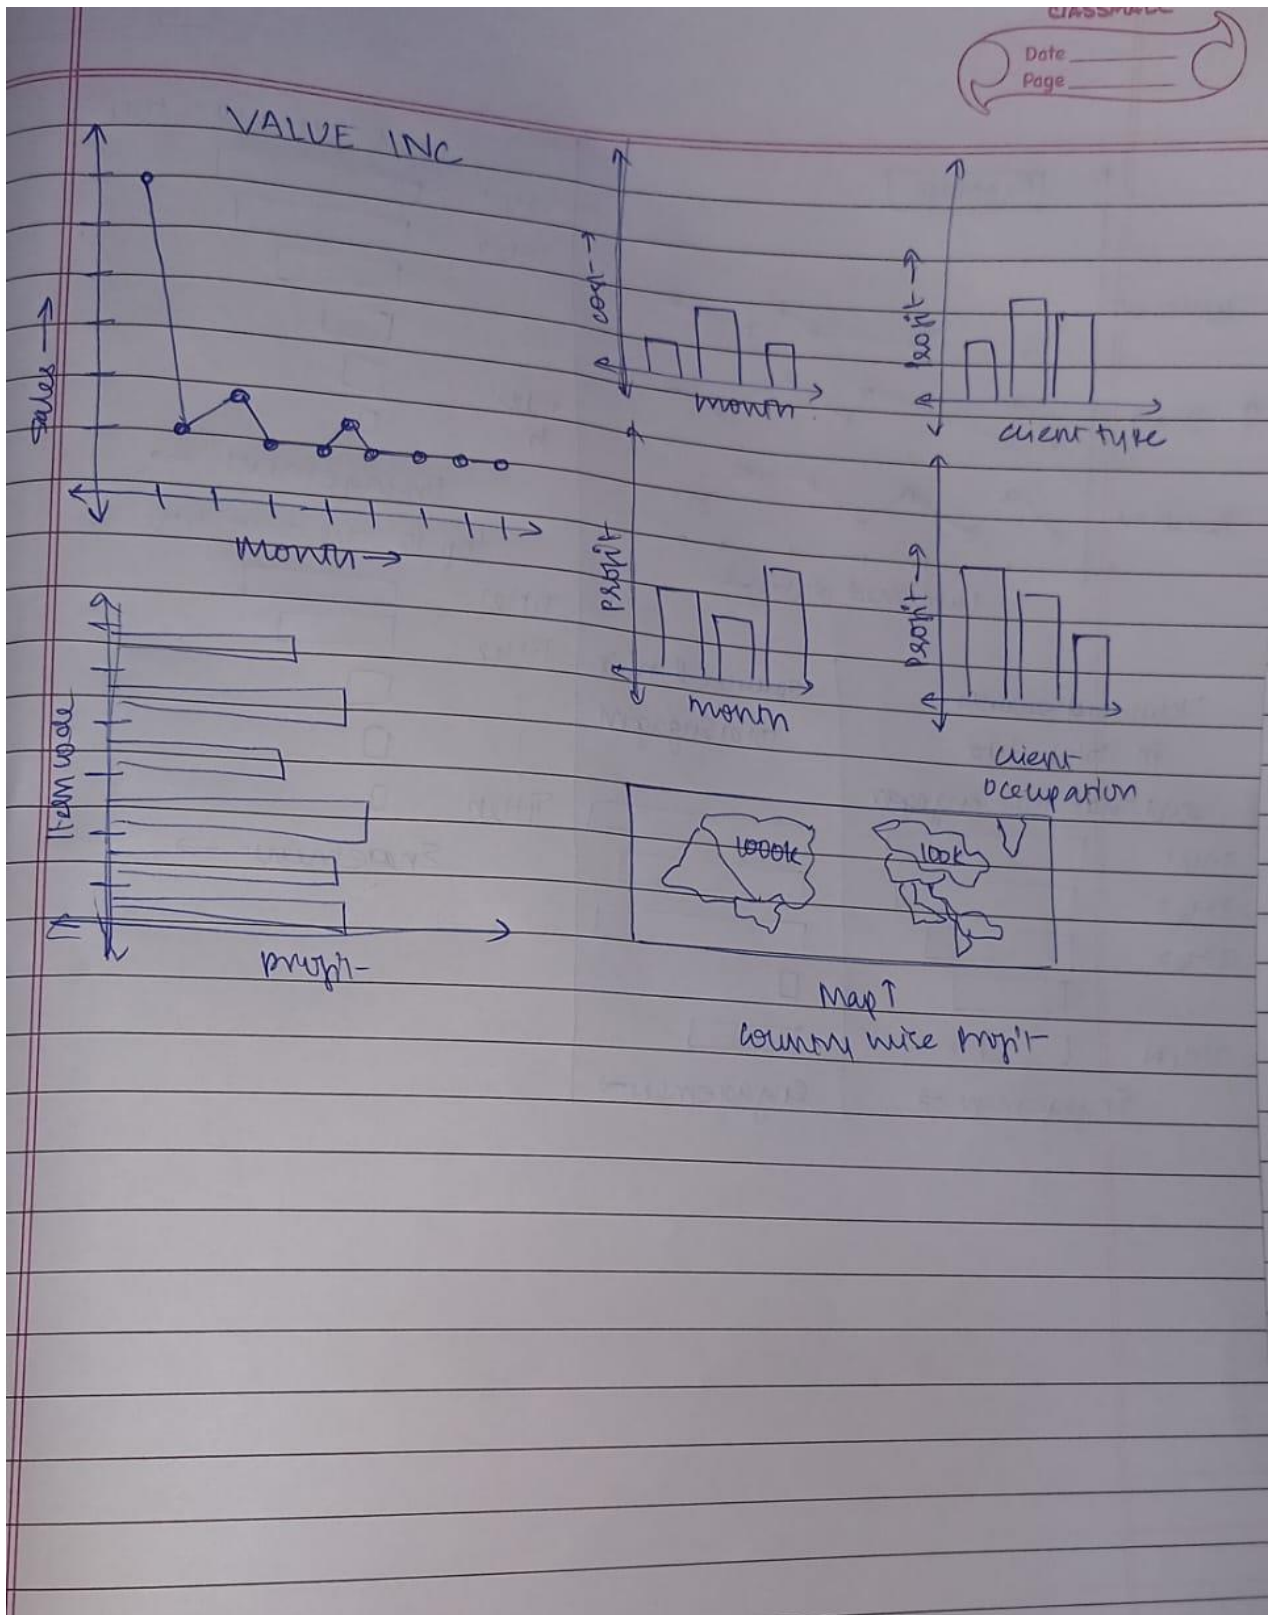 classmate
Date
Page
VALUE INC
Sales →
Month →
cost →
month
Profit →
client type
Profit
month
Profit →
client
occupation
Item code
profit
1000k
100k
Map ↑
country wise profit